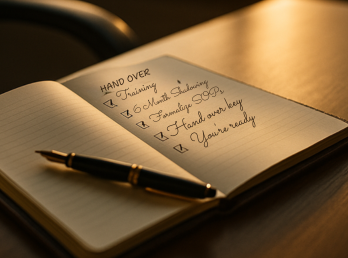 HAND OVER
Training
6 Month Shadowing
Formalize SOPs
Hand over key
You're ready